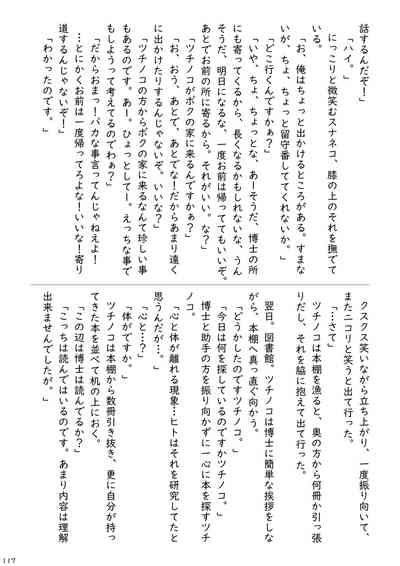 話するんだぞ！」
「ハイ。」
　にっこりと微笑むスナネコ、膝の上のそれを撫でて
いる。
「お、俺はちょっと出かけるところがある。すまな
いが、ちょ、ちょっと留守番しててくれないか。」
「どこ行くんですかぁ？」
「いや、ちょ、ちょっとな、あーそうだ、博士の所
にも寄ってくるから、長くなるかもしれないな、うん
そうだ、明日になるな、一度お前は帰っててもいいぞ。
あとでお前の所に寄るから。それがいい。な？」
「ツチノコがボクの家に来るんですかぁ？」
「お、おう、あとで、あとでな！だからあまり遠く
に出かけたりするんじゃないぞ。いいな？」
「ツチノコの方からボクの家に来るなんて珍しい事
もあるのです。あー。ひょっとしてー。えっちな事で
もしようって考えてるのでわぁ？」
「だからおまっ！バカな事言ってんじゃねえよ！
…とにかくお前は一度帰ってろよな！いいな！寄り
道するんじゃないぞ！」
「わかったのです。」
クスクス笑いながら立ち上がり、一度振り向いて、
またニコリと笑うと出て行った。
「……さて」
　ツチノコは本棚を漁ると、奥の方から何冊か引っ張
りだし、それを脇に抱えて出て行った。
　翌日。図書館。ツチノコは博士に簡単な挨拶をしな
がら、本棚へ真っ直ぐ向かう。
「どうかしたのですツチノコ。」
「今日は何を探しているのですかツチノコ。」
　博士と助手の方を振り向かずに一心に本を探すツチ
ノコ。
「心と体が離れる現象…ヒトはそれを研究してたと
思うんだが…。」
「心と…？」
「体がですか。」
　ツチノコは本棚から数冊引き抜き、更に自分が持っ
てきた本を並べて机の上におく。
「この辺は博士は読んでるか？」
「こっちは読んではいるのです。あまり内容は理解
出来ませんでしたが。」
117